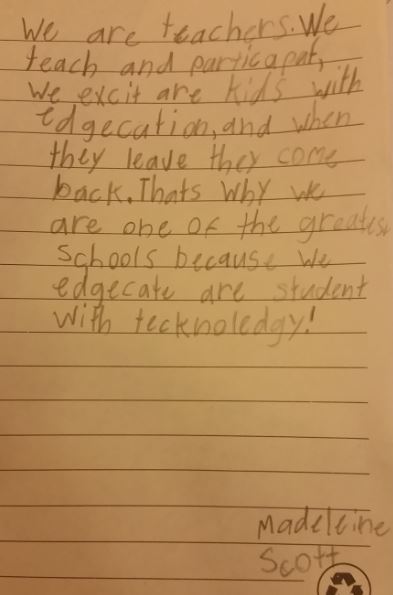 We are teachers. We
teach and particapat,
We excit are kids with
edgecation, and when
they leave they come
back. Thats why we
are one of the greatest
schools because we
edgecate are student
with tecknoledgy!
Madeleine
Scott